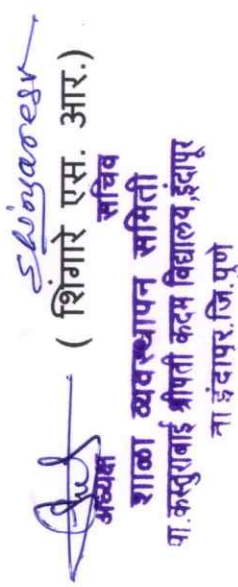 Shingaresr
( शिंगारे एस. आर.)
अध्यक्ष सचिव
शाळा व्यवस्थापन समिती
पा. कस्तुराबाई श्रीपती कदम विद्यालय,इंदापूर
ता इंदापूर.जि.पुणे